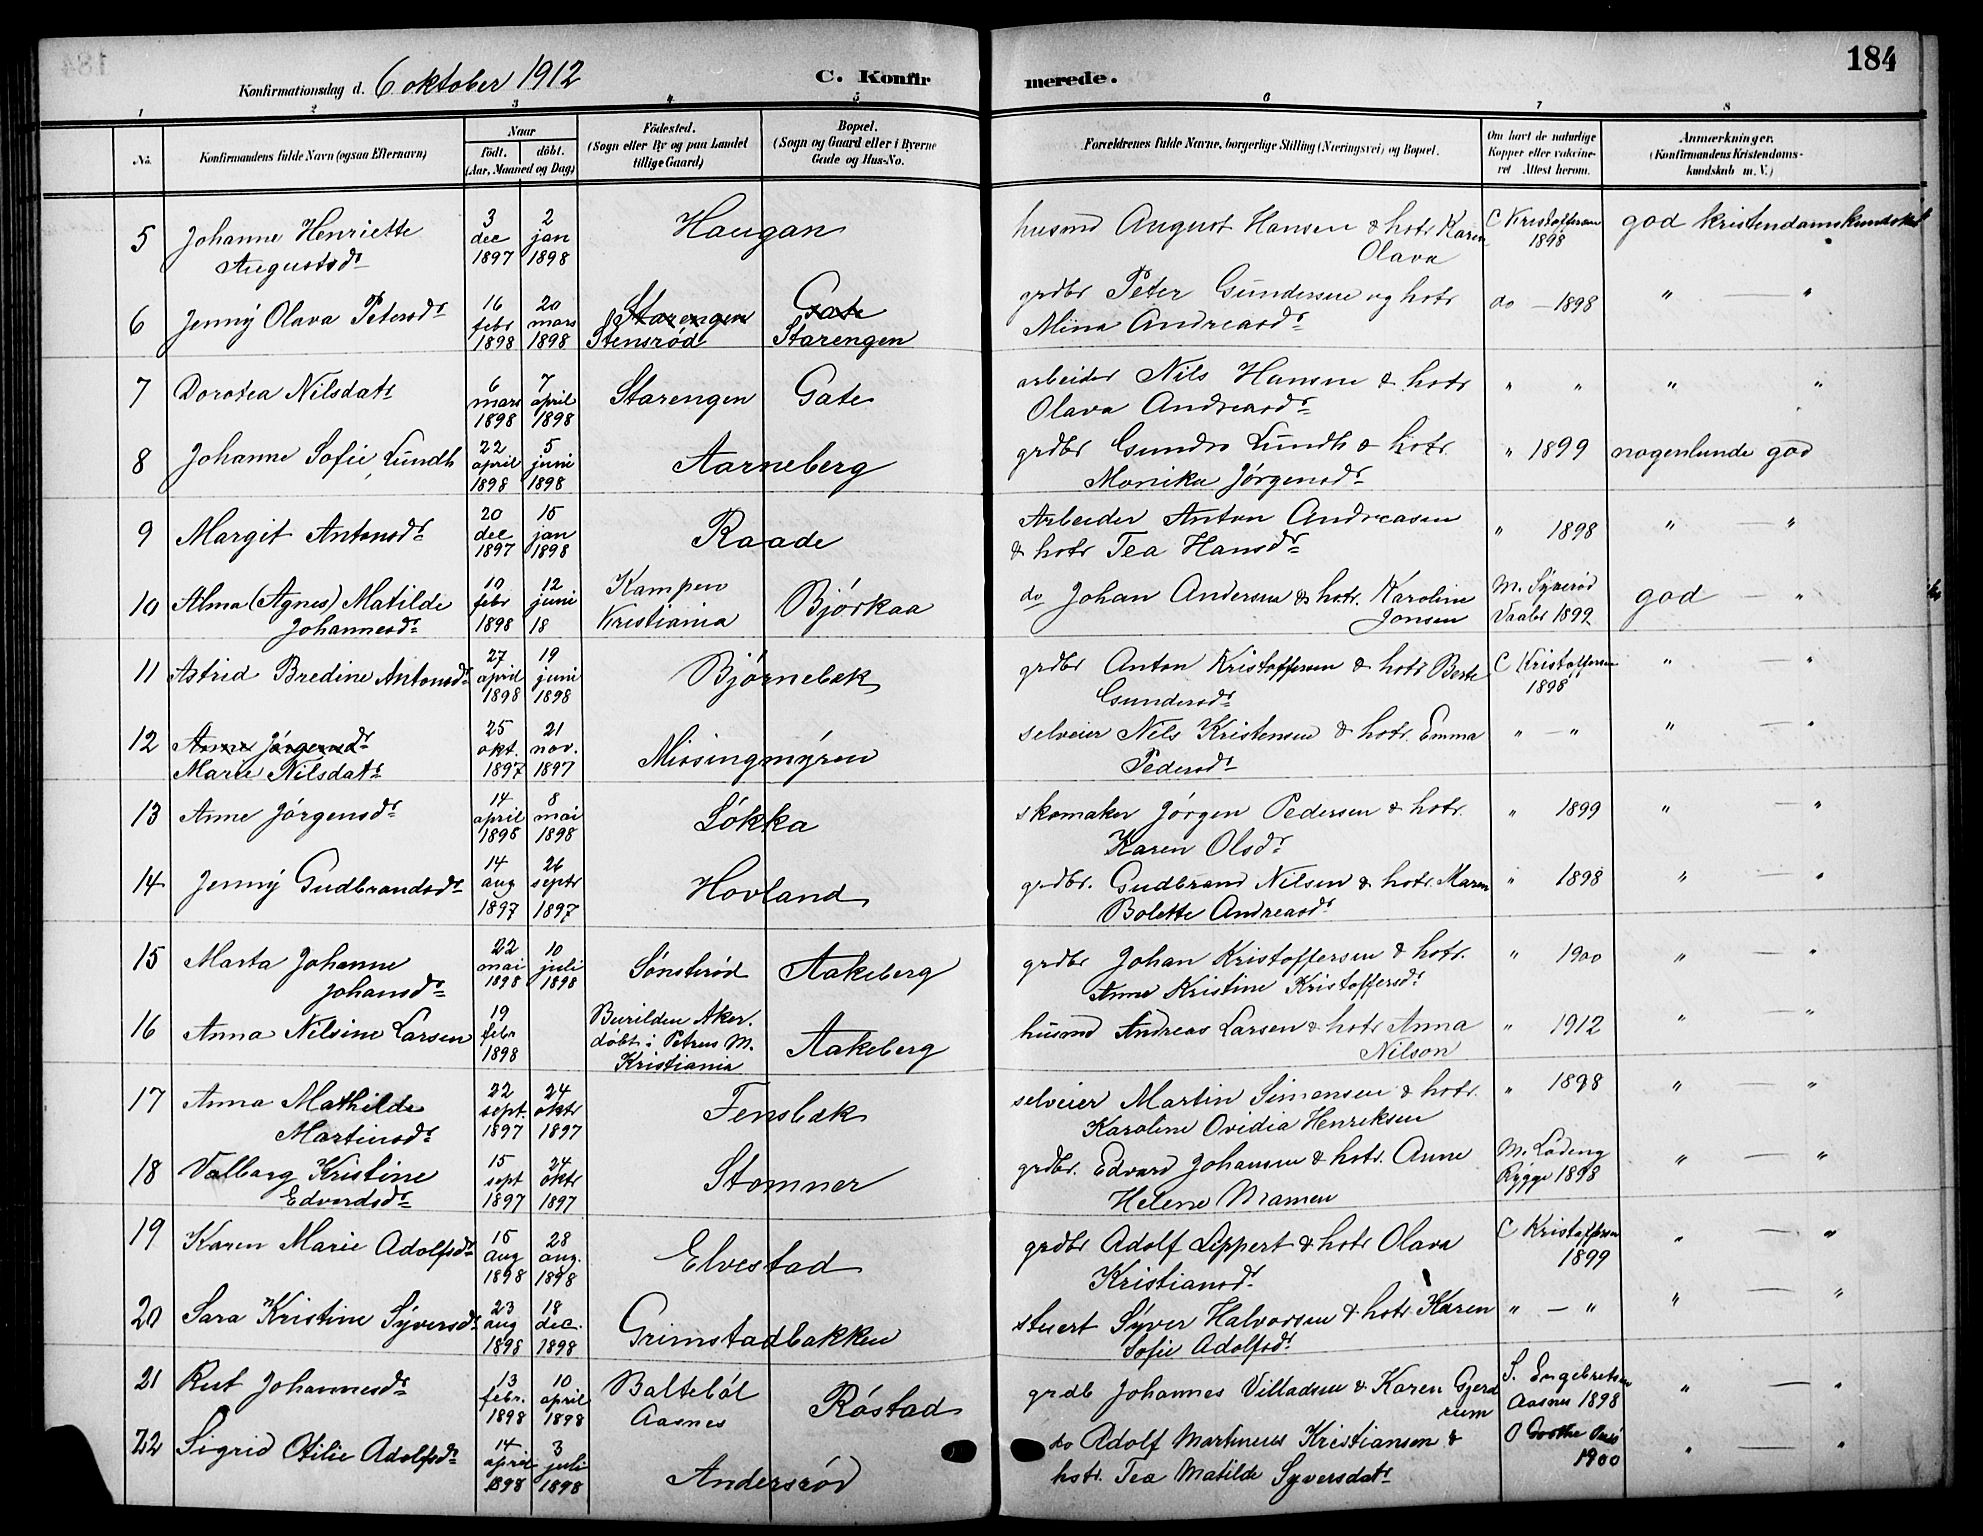 184
Konfirmationsdag d. 6 oktober 1912
C. Konfirmerede.
1 2 3 4 5 6 7 8
No. Konfirmandens fulde Navn (ogsaa Efternavn) Naar födt. döbt. (Aar, Maaned og Dag) Födested. (Sogn eller By og paa Landet tillige Gaard) Bopæl. (Sogn og Gaard eller i Byerne Gade og Hus-No. Forældrenes fulde Navne, borgerlige Stilling (Næringsvei) og Bopæl. Om havt de naturlige Kopper eller vakcineret Attest herom. Anmærkninger. (Konfirmandens Kristendomskundskab m. V.)
5 Johanne Henriette Augustsdr 3 dec 1897 2 jan 1898 Haugan husmd August Hansen & hstr Karen Olava C Kristoffersen 1898 god kristendomskundskab
6 Jenny Olava Petersdr 16 febr 1898 20 mars 1898 Starengen Stensrød Gate Starengen grdbr Peter Gundersen og hstr Mina Andreasdr do — 1898 " — "
7 Dorotea Nilsdatr 6 mars 1898 7 april 1898 Starengen Gate arbeider Nils Hansen & hstr Olava Andreasdr " " " "
8 Johanne Sofie Lundh 22 april 1898 5 juni 1898 Aarneberg grdbr Gundro Lundh & hstr. Monika Jörgensdr " 1899 nogenlunde god
9 Margit Antonsdr 20 dec 1897 15 jan 1898 Raade Arbeider Anton Andreasen & hstr Tea Hansdr " 1898 " — "
10 Alma (Agnes) Matilde Johannesdr 10 febr 1898 12 juni 18 Kampen Kristiania Björkaa do Johan Andersen & hstr. Karoline Jonsen M. Syverød Vaaler 1892 god — "
11 Astrid Bredine Antonsdr 27 april 1898 19 juni 1898 Bjørnebek grdbr Anton Kristoffersen & hstr Berte Gundersdr C Kristoffersen 1898 " — "
12 Anne Jörgensdr Marie Nilsdatr 25 okt. 1897 21 nov. 1897 Missingmyren selveier Nils Kristensen & hstr. Emma Pedersdr " — " " — "
13 Anne Jörgensdr 14 april 1898 8 mai 1898 Lökka skomaker Jörgen Pedersen & hstr. Karen Olsdr " 1899 " — "
14 Jenny Gudbrandsdr 14 aug 1897 26 septr 1897 Hovland grdbr. Gudbrand Nilsen & hstr. Maren Bolette Andreasdr " 1898 " — "
15 Marta Johanne Johansdr 22 mai 1898 10 juli 1898 Sönsterød Aakeberg grdbr Johan Kristoffersen & hstr. Anne Kristine Kristoffersdr " 1900 " — "
16 Anna Nilsine Larsen 19 febr 1898 Aker. döbt i Petrus M. Kristiania Aakeberg husmd Andreas Larsen & hstr Anna Nilson " 1912 " — "
17 Anna Mathilde Martinsdr 22 sept. 1897 24 oktr 1897 Fensbæk selveier Martin Simensen & hstr. Karoline Ovidia Henriksen " 1898 " — "
18 Valborg Kristine Edvardsdr 15 sept 1897 24 oktr 1897 Stomner grdbr. Edvard Johansen & hstr. Anne Helene Mamen M. Lödeng Rygge 1898 " — "
19 Karen Marie Adolfsdr 15 aug 1898 28 aug. 1898 Elvestad grdbr Adolf Lippert & hstr Olava Kristiansdr C Kristoffersen 1899 " — "
20 Sara Kristine Syversdr 23 aug 1898 18 dec. 1898 Grimstadbakken stuert Syver Halvorsen & hstr. Karen Sofie Adolfsdr " — " " — "
21 Rut Johannesdr 13 febr. 1898 10 april 1898 Balteböl Aasnes Röstad grdb Johannes Villadsen & Karen Gjerdrum S. Engebretsen Aasnes 1898 " — "
22 Sigrid Otilie Adolfsdr 14 april 1898 3 juli 1898 Andersröd do Adolf Martinius Kristiansen & hstr. Tea Matilde Syversdatr 1900 " — "